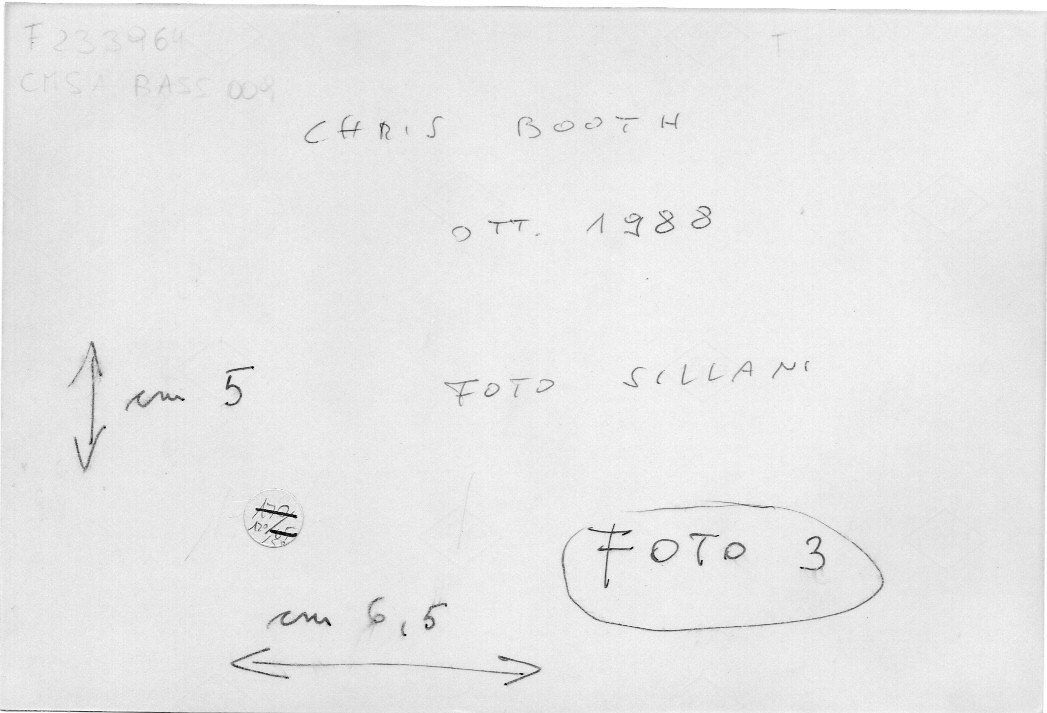 F 233964
T
CMSA BASS 004
CHRIS BOOTH
OTT. 1988
cm 5
FOTO SILLANI
FOTO 3
cm 6,5